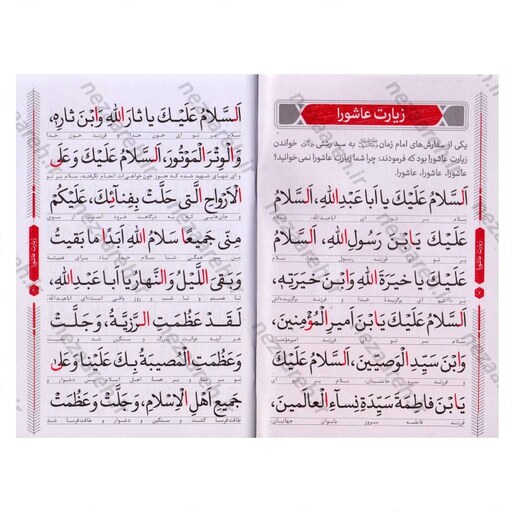 زیارت عاشورا
یکی از سفارش‌های امام زمان به سید رشتی خواندن
زیارت عاشورا بود که فرمودند: چرا شما زیارت عاشورا نمی‌خوانید؟
عاشورا، عاشورا، عاشورا.
اَلسَّلامُ عَلَیْكَ یا اَبا عَبْدِاللّٰهِ، اَلسَّلامُ
سلام بر تو ای اباعبدالله،
عَلَیْكَ یَا بْنَ رَسُولِ اللّٰهِ، اَلسَّلامُ
عَلَیْكَ یا خِیَرَةَ اللّٰهِ وَابْنَ خِیَرَتِهٖ،
اَلسَّلامُ عَلَیْكَ یَا بْنَ اَمیرِالْمُؤْمِنینَ،
وَابْنَ سَیِّدِ الْوَصِیّینَ، اَلسَّلامُ عَلَیْكَ
یَا بْنَ فاطِمَةَ سَیِّدَةِ نِسآءِ الْعالَمینَ،
فرزند فاطمه سرور بانوان جهانیان؛
زیارت عاشورا
اَلسَّلامُ عَلَیْكَ یا ثارَاللّٰهِ وَابْنَ ثارِهٖ،
وَالْوِتْرَ الْمَوْتُورَ، اَلسَّلامُ عَلَیْكَ وَعَلَی
الْاَرْواحِ الَّتی حَلَّتْ بِفِنآئِكَ، عَلَیْكُمْ
مِنّی جَمیعًا سَلامُ اللّٰهِ اَبَدًا ما بَقیتُ
وَبَقِیَ اللَّیْلُ وَالنَّهارُ، یا اَبا عَبْدِاللّٰهِ،
لَقَدْ عَظُمَتِ الرَّزِیَّةُ، وَجَلَّتْ
وَعَظُمَتِ الْمُصیبَةُ بِكَ عَلَیْنا وَعَلی
جَمیعِ اَهْلِ الْاِسْلامِ، وَجَلَّتْ وَعَظُمَتْ
زیارت عاشورا
nezaareh.ir